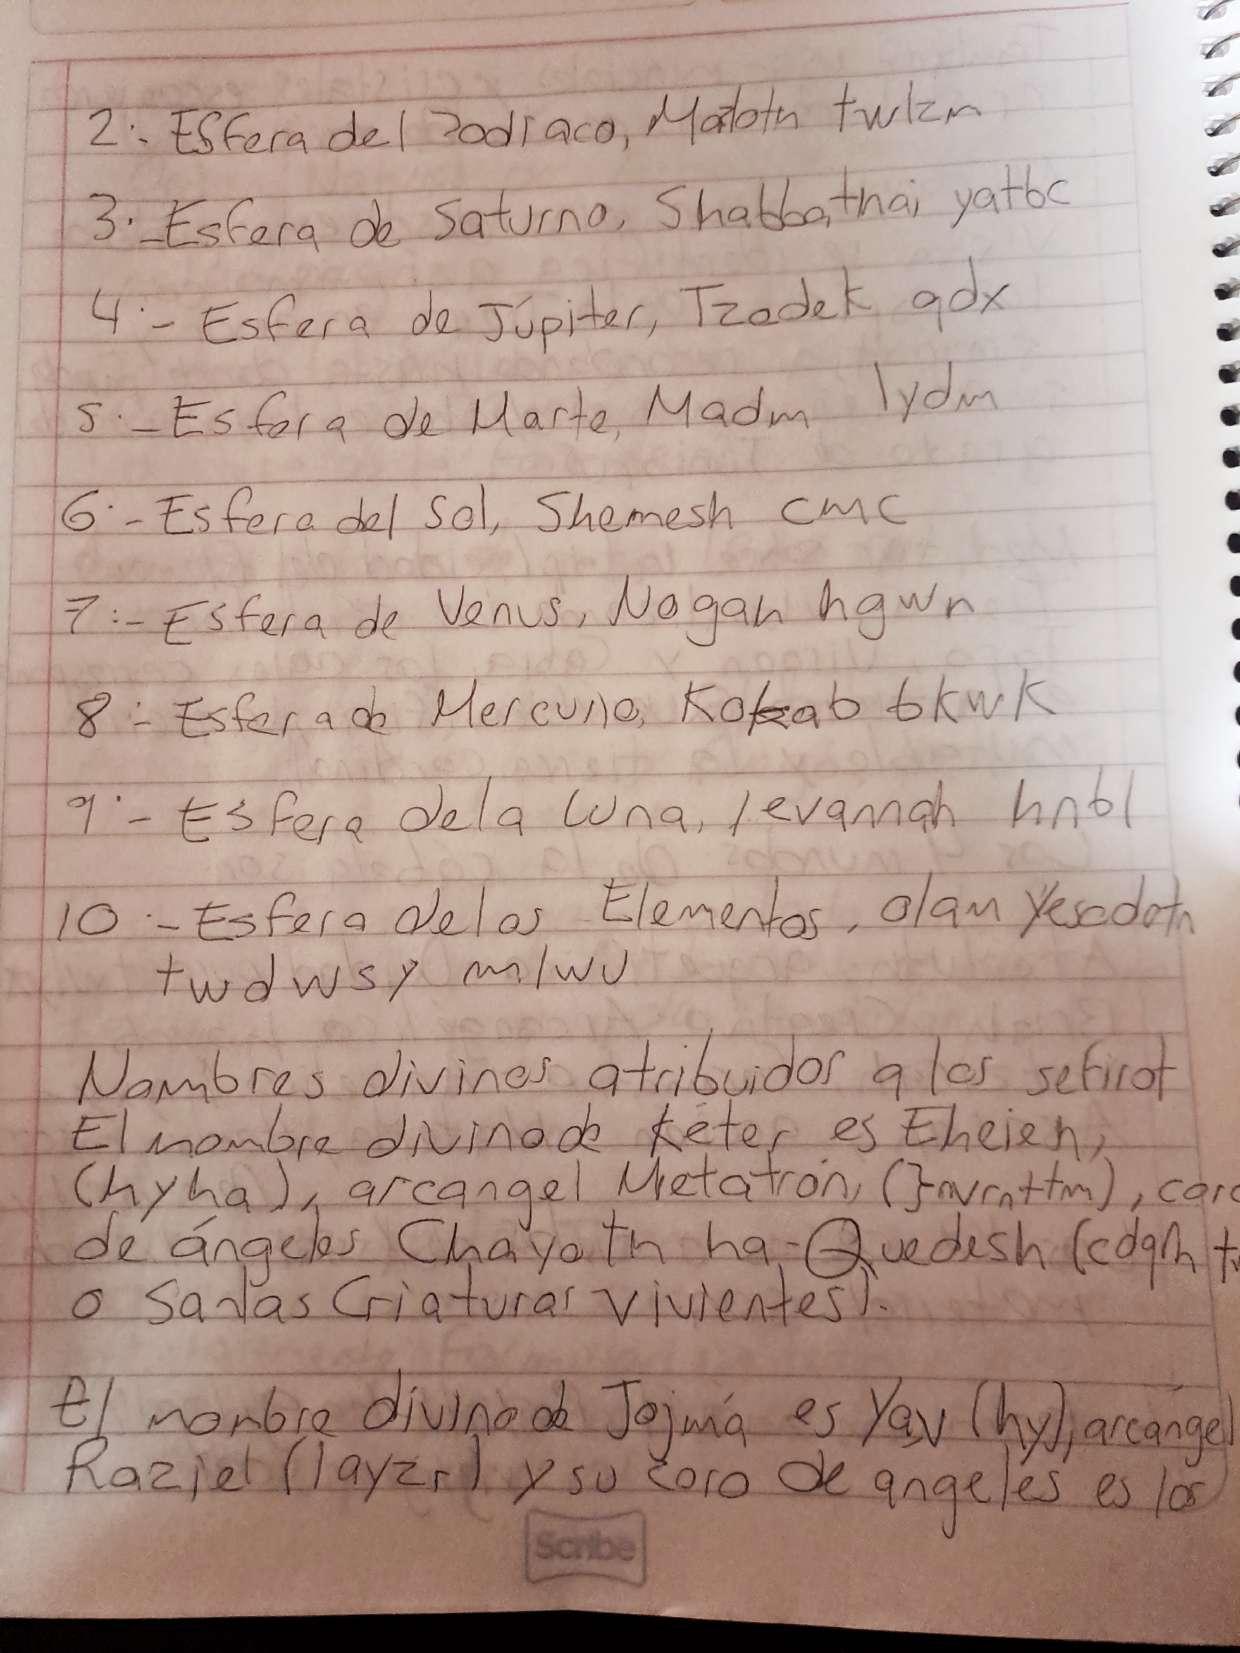 2.- Esfera del Zodiaco, Mazloth twlzm
3.- Esfera de Saturno, Shabbathai yatbc
4.- Esfera de Júpiter, Tzadek qdx
5.- Esfera de Marte, Madm lydm
6.- Esfera del Sol, Shemesh cmc
7.- Esfera de Venus, Nogah hgwn
8.- Esfera de Mercurio, Kokab bkwk
9.- Esfera de la Luna, levannah hnbl
10.- Esfera de los Elementos, olam Yesodoth
twdwsy mlwu
Nombres divinos atribuidos a los sefirot
El nombre divino de Kéter es Eheieh,
(hyha), arcangel Metatrón, (}wrnttm), coro
de ángeles Chayoth ha-Quedesh (cdqh
o Santas Criaturas vivientes).
El nombre divino de Jojmá es Yav (hy), arcangel
Raziel (layzr) y su coro de angeles es los
Scribe